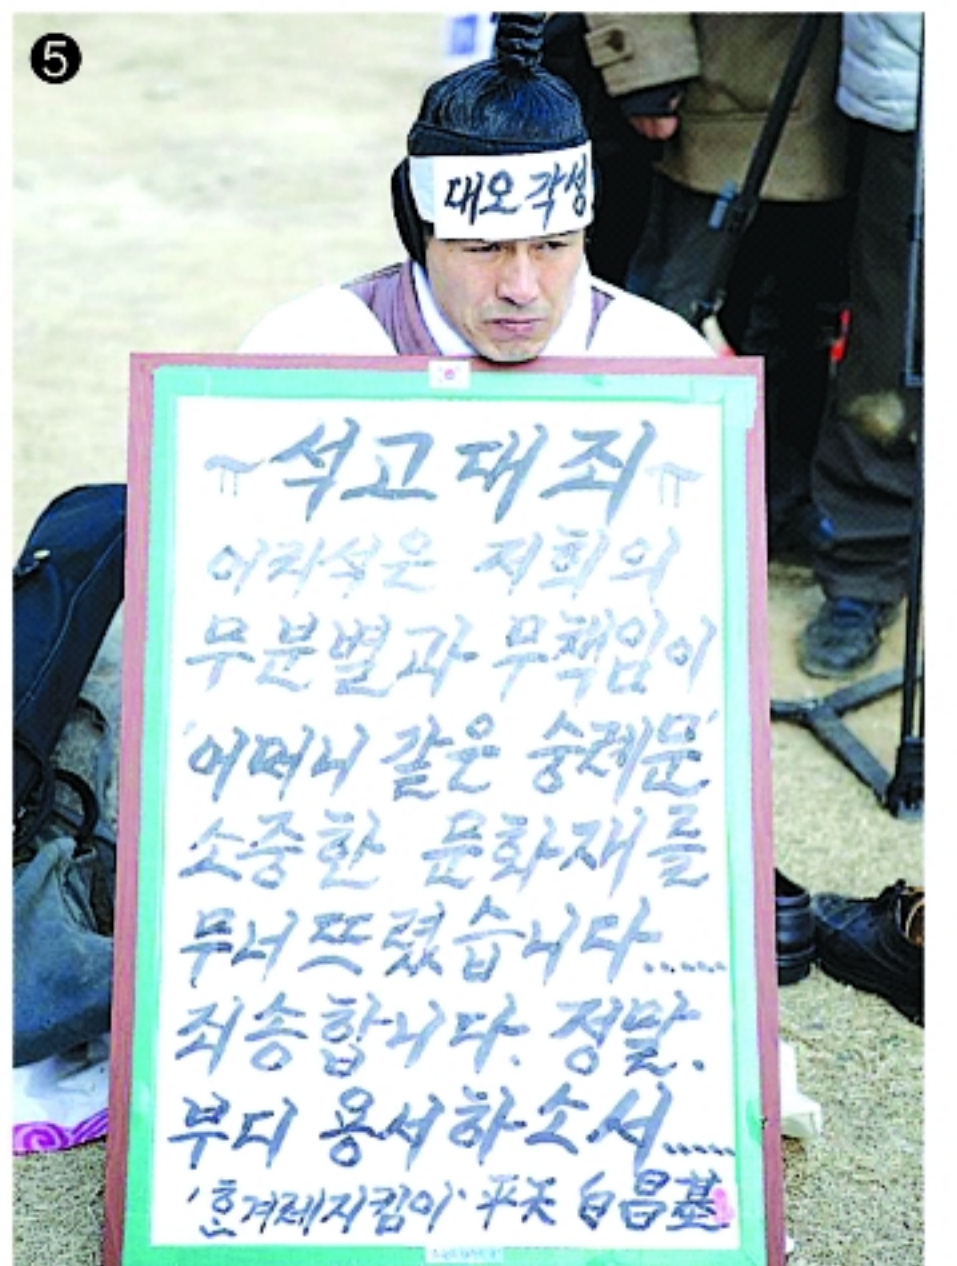 5
대오각성
석고대죄
어리석은 저희의
무분별과 무책임이
'어머니 같은 숭례문'
소중한 문화재를
무너뜨렸습니다......
죄송합니다. 정말.
부디 용서하소서.....
'혼겨레지킴이' 平天 白昌基